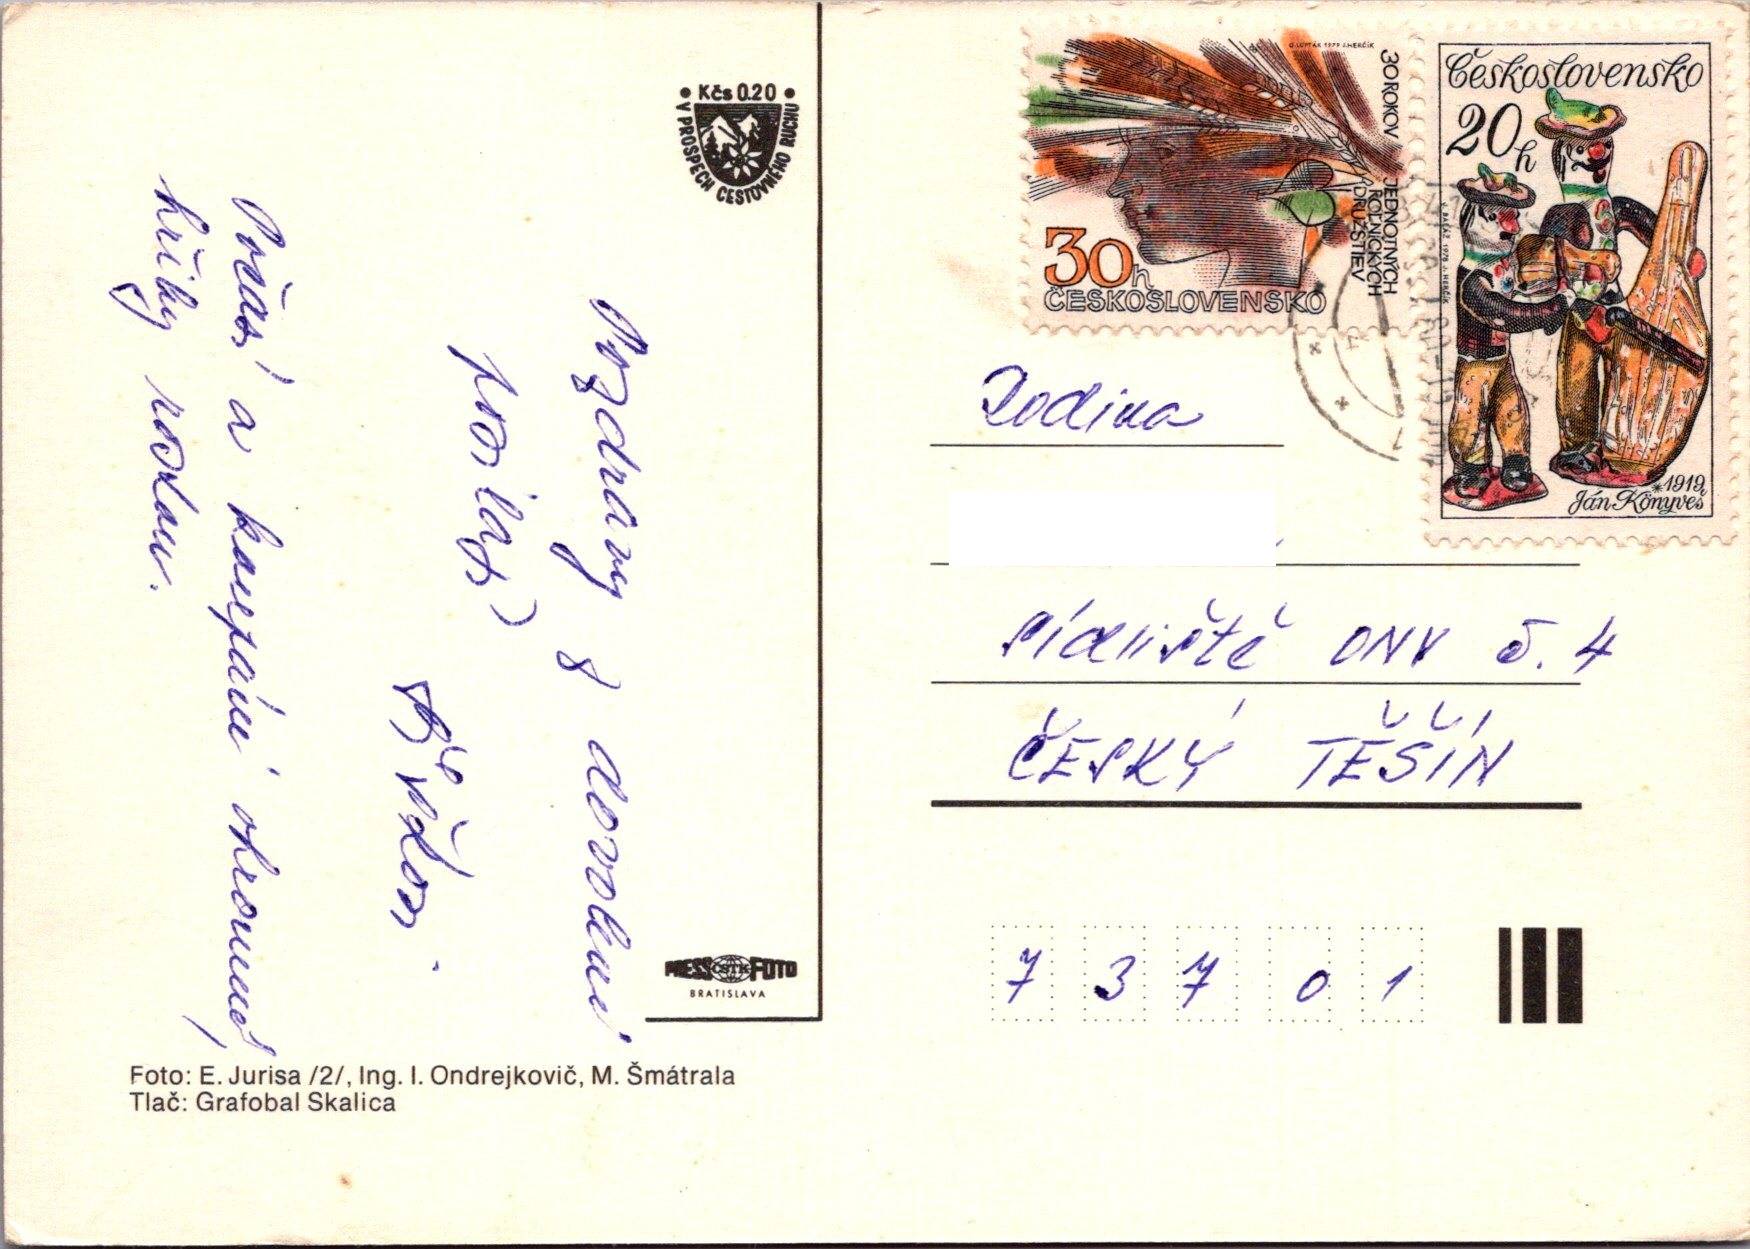 Kčs 0.20
V PROSPECH CESTOVNÉHO RUCHU
Pozdravy z dovolené
posílají
Počasí a koupání ohromné,
hřiby rostou.
PRESS ČSTK FOTO
BRATISLAVA
Foto: E. Jurisa /2/, Ing. I. Ondrejkovič, M. Šmátrala
Tlač: Grafobal Skalica
O. LUPTÁK 1979 J. HERČÍK
30 ROKOV
JEDNOTNÝCH
ROĽNÍCKYCH
DRUŽSTIEV
30h
ČESKOSLOVENSKO
Československo
20h
J. BALÁŽ 1978 J. HERČÍK
*1919
Ján Könyveš
Rodina
sídliště ONV č. 4
ČESKÝ TĚŠÍN
7 3 7 0 1